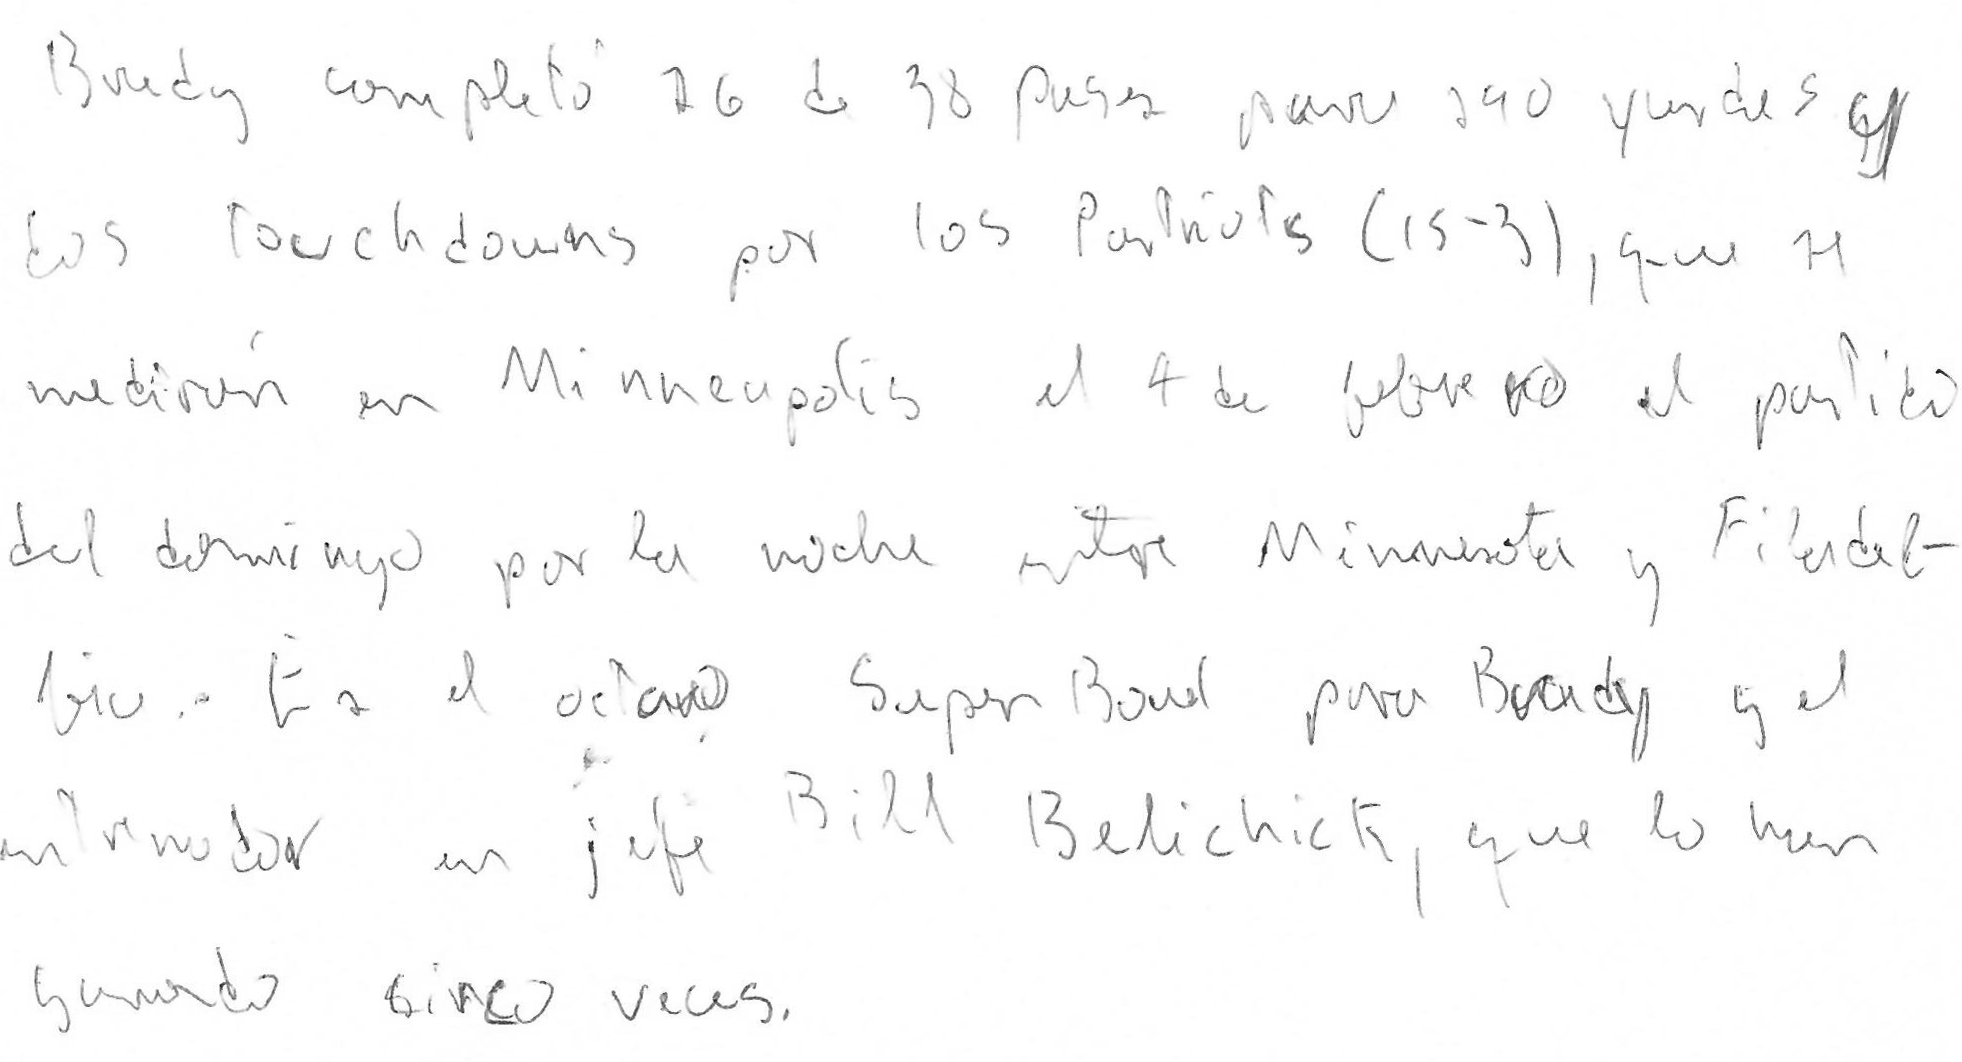 Brady completó 26 de 38 pases para 290 yardas y
dos touchdowns por los Patriots (15-3), que se
medirán en Minneapolis el 4 de febrero el partido
del domingo por la noche entre Minnesota y Filadel-
fia. Es el octavo Super Bowl para Brady y el
entrenador en jefe Bill Belichick, que lo han
ganado cinco veces.